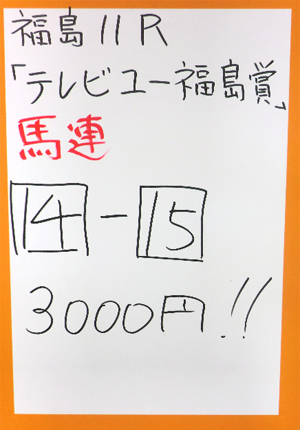 福島11R
「テレビユー福島賞」
馬連
14-15
3000円!!